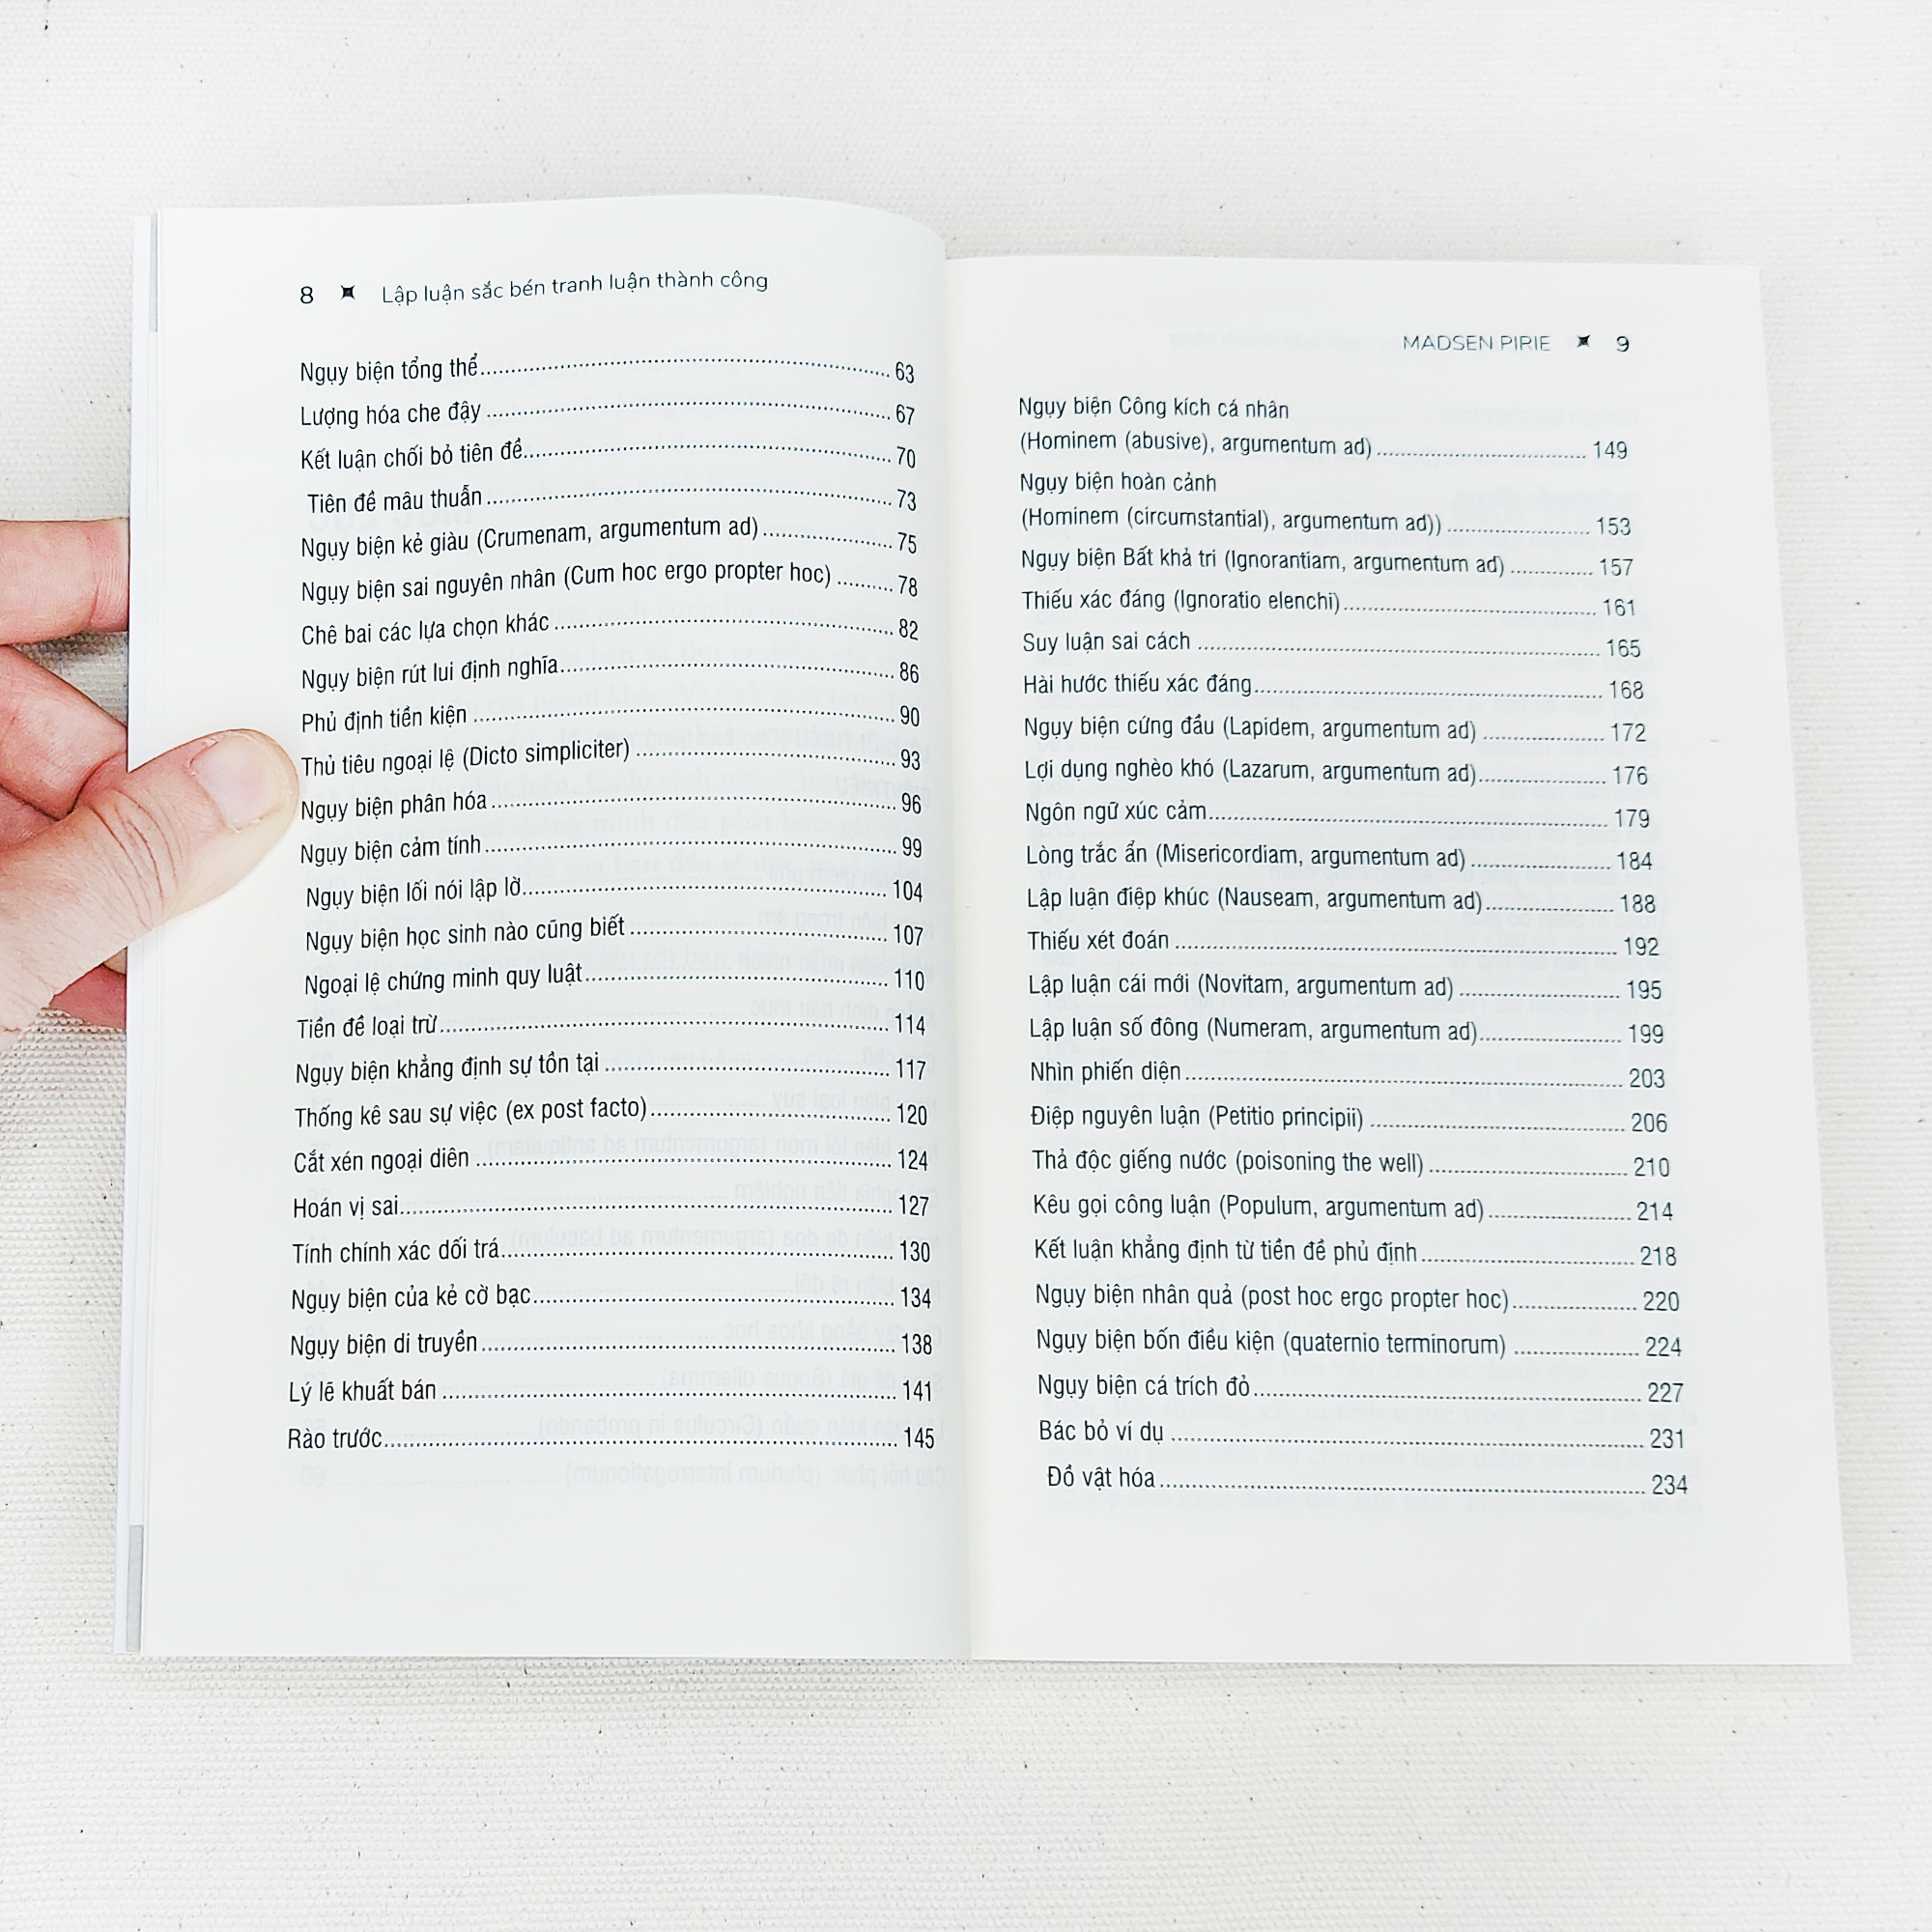 8 Lập luận sắc bén tranh luận thành công
Ngụy biện tổng thể 63
Lượng hóa che đậy 67
Kết luận chối bỏ tiên đề 70
Tiên đề mâu thuẫn 73
Ngụy biện kẻ giàu (Crumenam, argumentum ad) 75
Ngụy biện sai nguyên nhân (Cum hoc ergo propter hoc) 78
Chê bai các lựa chọn khác 82
Ngụy biện rút lui định nghĩa 86
Phủ định tiền kiện 90
Thủ tiêu ngoại lệ (Dicto simpliciter) 93
Ngụy biện phân hóa 96
Ngụy biện cảm tính 99
Ngụy biện lối nói lập lờ 104
Ngụy biện học sinh nào cũng biết 107
Ngoại lệ chứng minh quy luật 110
Tiền đề loại trừ 114
Ngụy biện khẳng định sự tồn tại 117
Thống kê sau sự việc (ex post facto) 120
Cắt xén ngoại diên 124
Hoán vị sai 127
Tính chính xác dối trá 130
Ngụy biện của kẻ cờ bạc 134
Ngụy biện di truyền 138
Lý lẽ khuất bán 141
Rào trước 145
MADSEN PIRIE 9
Ngụy biện Công kích cá nhân
(Hominem (abusive), argumentum ad) 149
Ngụy biện hoàn cảnh
(Hominem (circumstantial), argumentum ad)) 153
Ngụy biện Bất khả tri (Ignorantiam, argumentum ad) 157
Thiếu xác đáng (Ignoratio elenchi) 161
Suy luận sai cách 165
Hài hước thiếu xác đáng 168
Ngụy biện cứng đầu (Lapidem, argumentum ad) 172
Lợi dụng nghèo khó (Lazarum, argumentum ad) 176
Ngôn ngữ xúc cảm 179
Lòng trắc ẩn (Misericordiam, argumentum ad) 184
Lập luận điệp khúc (Nauseam, argumentum ad) 188
Thiếu xét đoán 192
Lập luận cái mới (Novitam, argumentum ad) 195
Lập luận số đông (Numeram, argumentum ad) 199
Nhìn phiến diện 203
Điệp nguyên luận (Petitio principii) 206
Thả độc giếng nước (poisoning the well) 210
Kêu gọi công luận (Populum, argumentum ad) 214
Kết luận khẳng định từ tiền đề phủ định 218
Ngụy biện nhân quả (post hoc ergo propter hoc) 220
Ngụy biện bốn điều kiện (quaternio terminorum) 224
Ngụy biện cá trích đỏ 227
Bác bỏ ví dụ 231
Đồ vật hóa 234